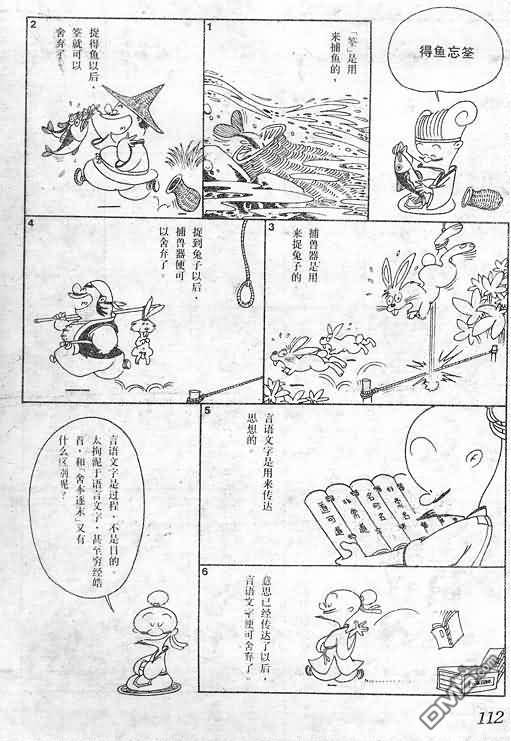 得鱼忘筌
1
「筌」是用
来捕鱼的，
2
捉得鱼以后，
筌就可以
舍弃了。
3
捕兽器是用
来捉兔子的
4
捉到兔子以后，
捕兽器便可
以舍弃了。
5
言语文字是用来传达
思想的。
6
意思已经传达了以后，
言语文字便可舍弃了。
言语文字是过程，不是目的。
太拘泥于语言文字，甚至穷经皓
首，和「舍本逐末」又有
什么区别呢？
道可道
非常道
名可名
112